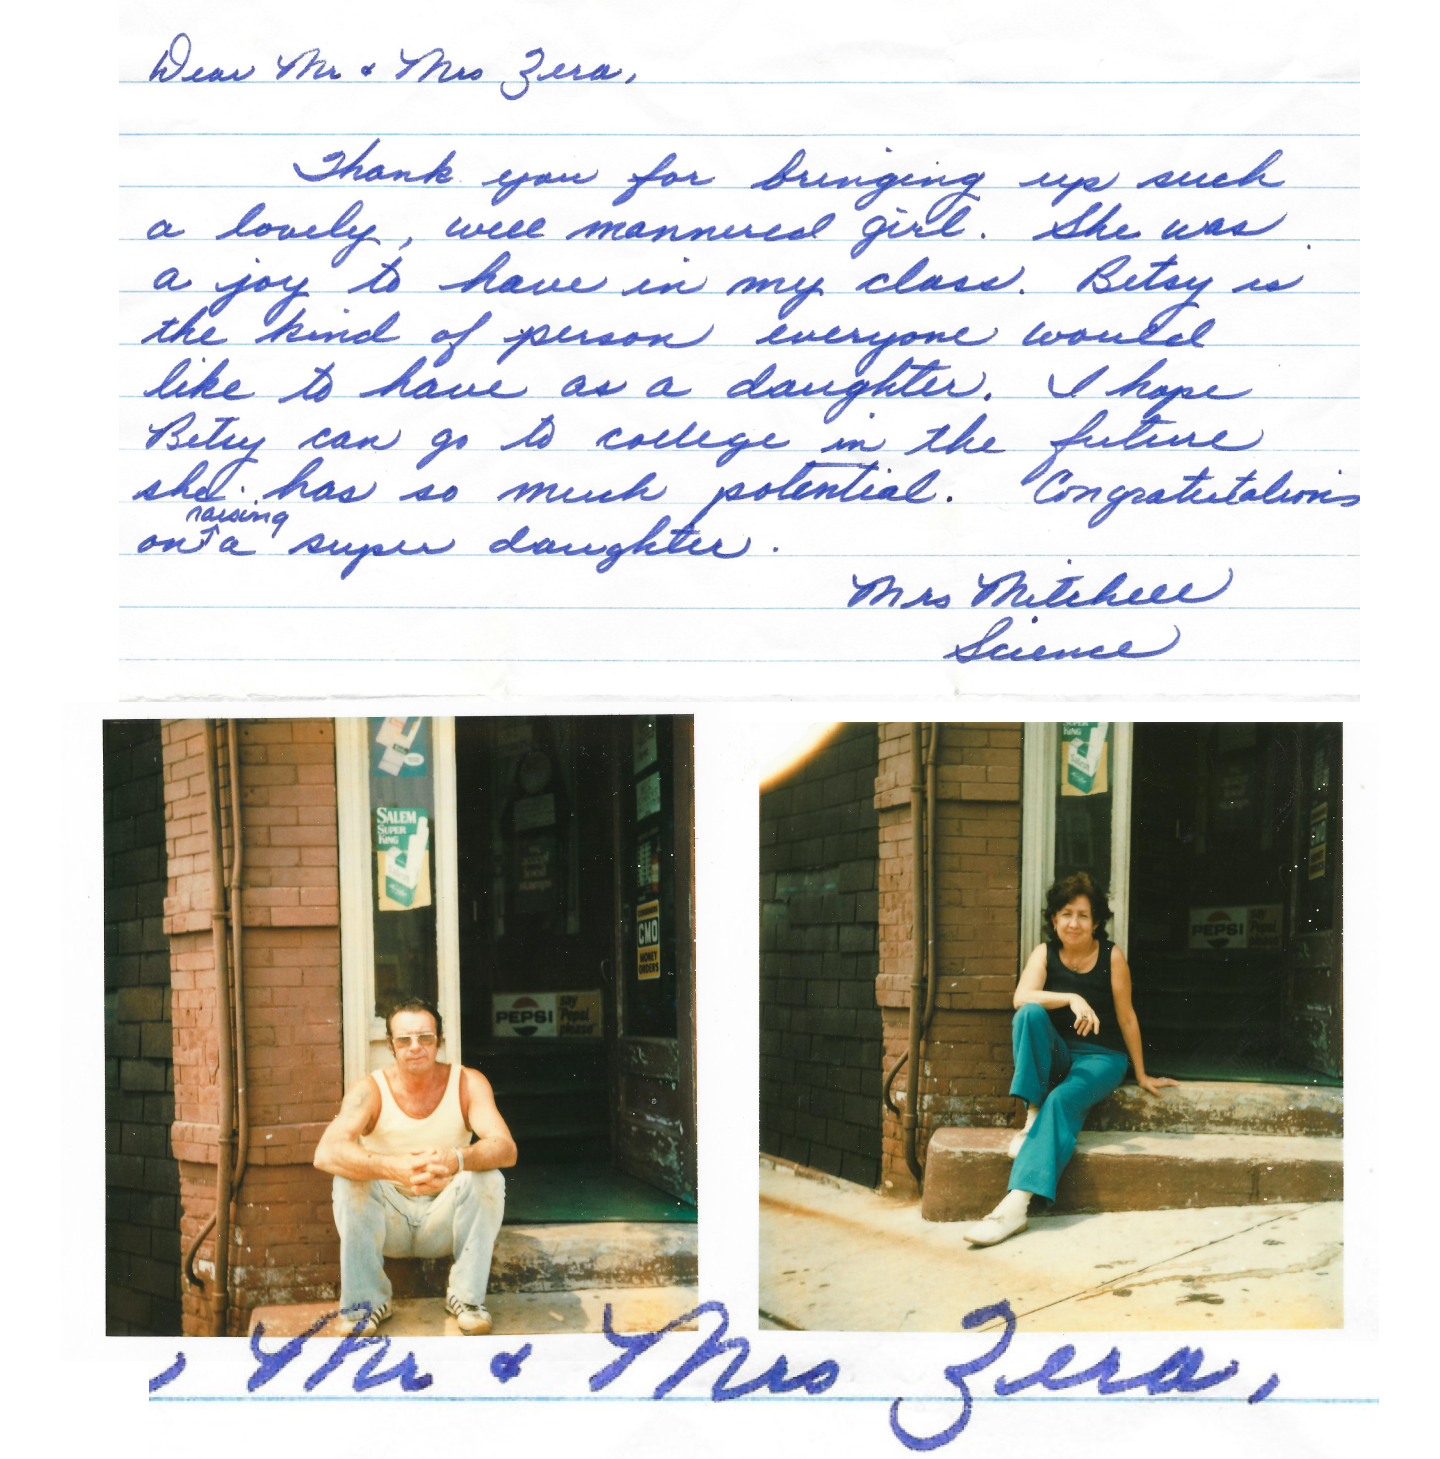 Dear Mr & Mrs Zera,
Thank you for bringing up such
a lovely, well mannered girl. She was
a joy to have in my class. Betsy is
the kind of person everyone would
like to have as a daughter. I hope
Betsy can go to college in the future
she has so much potential. Congratutations
raising
on a super daughter.
Mrs Mitchell
Science
SALEM
SUPER
KING
CMO
MONEY
ORDERS
PEPSI
say
Pepsi
please
SUPER
KING
PEPSI
say
Pepsi
please
, Mr & Mrs Zera,